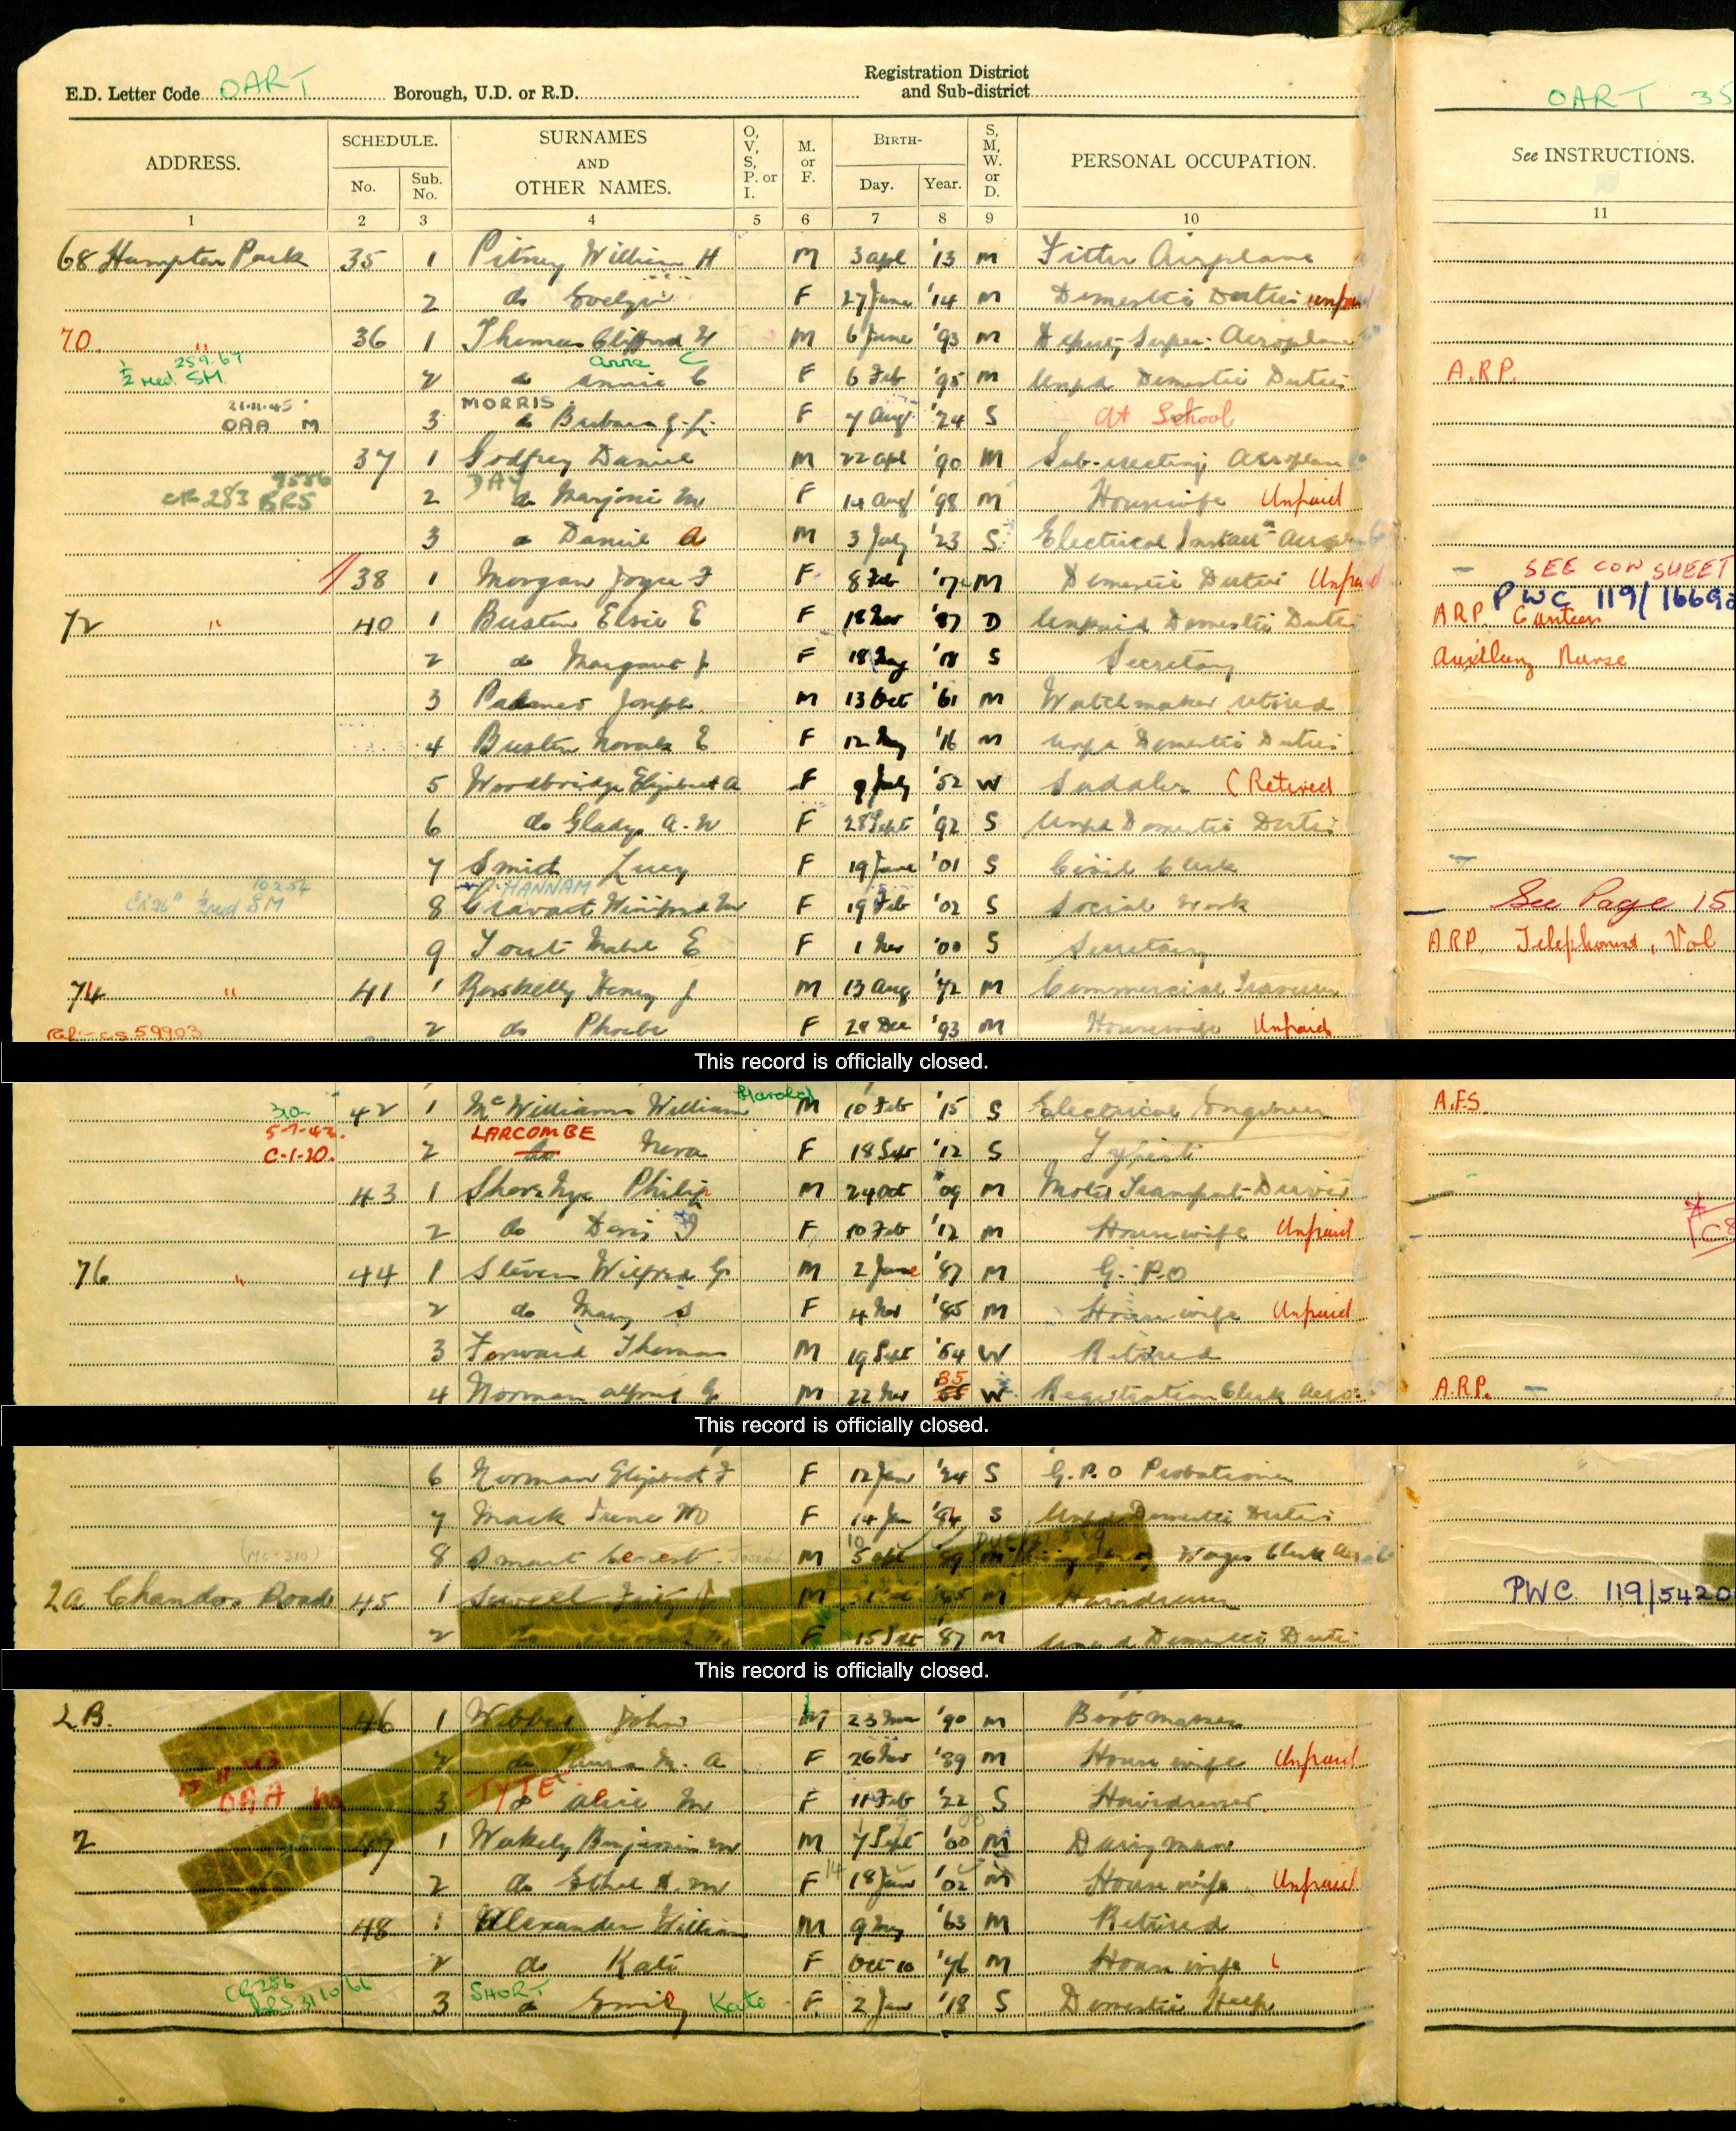 Registration District
E.D. Letter Code OART Borough, U.D. or R.D. and Sub-district
OART 35
ADDRESS. SCHEDULE. No. Sub. No. SURNAMES AND OTHER NAMES. O, V, S, P. or I. M. or F. BIRTH- Day. Year. S, M, W. or D. PERSONAL OCCUPATION. See INSTRUCTIONS.
1 2 3 4 5 6 7 8 9 10 11
68 Hampton Park 35 1 Pitney William H M 3 apl '13 M Fitter Airplane
2 do Evelyn F 27 June '14 M Domestic Duties unpai
70 " 36 1 Thomas Clifford W M 6 June '93 M Deputy Super: Aeroplane
25 9 67 Anne C
½ Med. SM 2 do Annie C F 6 Feb '95 M Unpd Domestic Duties A.R.P.
21.11.45 MORRIS
OAA M 3 do Barbara F 7 Aug '24 S At School
37 1 Godfrey Daniel M 22 apl '90 M Sub-erecting Aeroplane
9556 DAY
CR 283 BRS 2 do Marjorie M F 14 Aug '98 M Housewife Unpaid
3 do Daniel A M 3 July '23 S Electrical Install
38 1 Morgan Joyce F F 8 Feb '17 M Domestic Duties Unpai SEE CON SHEET
PWC 119/1669
72 " 40 1 Elsie E F 18 Nov '87 D Unpaid Domestic Duties ARP. Canteen
2 do Margaret J F 18 Aug '18 S Secretary Auxillary Nurse
3 Palmer Joseph M 13 Oct '61 M Watchmaker retired
4 Norah E F 12 '16 M Unpd Domestic Duties
5 Woodbridge Elizabeth A F 9 July '52 W Saddler (Retired
6 do Gladys A. W F 28 Sept '92 S Unpd Domestic Duties
7 Smith Lucy F 19 June '01 S Civil Clerk
10 2 54 HANNAM
½ Med SM 8 Winifred M F 19 Feb '02 S Social Work See Page 15
9 Yout Mabel E F 1 Nov '00 S Secretary ARP. Telephonist, Vol
74 " 41 1 Roskelly Henry J M 13 Aug '72 M Commercial Traveller
Ref:- CS 59903 2 do Phoebe F 28 Dec '93 M Housewife Unpaid
This record is officially closed.
Harold
42 1 McWilliams William M 10 Feb '15 S Electrical Engineer A.F.S.
5-7-43. LARCOMBE
C-1-20. 2 do Nora F 18 Sept '12 S Typist
43 1 Philip M 24 Oct '09 M Motor Transport Driver
2 do Doris F 10 Feb '12 M Housewife Unpaid
76 " 44 1 Steven Wilfred G M 2 June '87 M G.P.O
2 do Mary S F 4 Nov '85 M Housewife Unpaid
3 Forward Thomas M 19 Sept '64 W Retired
85
4 Norman Alfred G M 22 Nov W Registration Clerk Aero A.R.P.
This record is officially closed.
6 Norman Elizabeth F F 12 Jan '24 S G.P.O Probationer
7 Mack Irene F 14 Jan '94 S Unpd Domestic Duties
8 Smart M 5 apl '89 Wages Clerk
2A Chandos Road 45 1 M M Hairdresser PWC 119/5420
2 F 15 Sept '87 M Unpd Domestic Duties
This record is officially closed.
2B. 46 1 Webber John M 23 '90 M Boot maker
2 do Laura M. A F 26 Nov '89 M Housewife Unpaid
OAA M TYTE
3 do Alice M F 11 Feb '22 S Hairdresser
2 47 1 Wakely Benjamin M 7 Sept '00 M Dairyman
2 do Ethel A. M F 18 Jan '02 M Housewife Unpaid
48 1 Alexander William M 9 '63 M Retired
2 do Kate F Oct 10 '76 M Housewife
CR 286 SHORT
BRS 31 10 66 3 do Emily Kate F 2 Jan '18 S Domestic Help